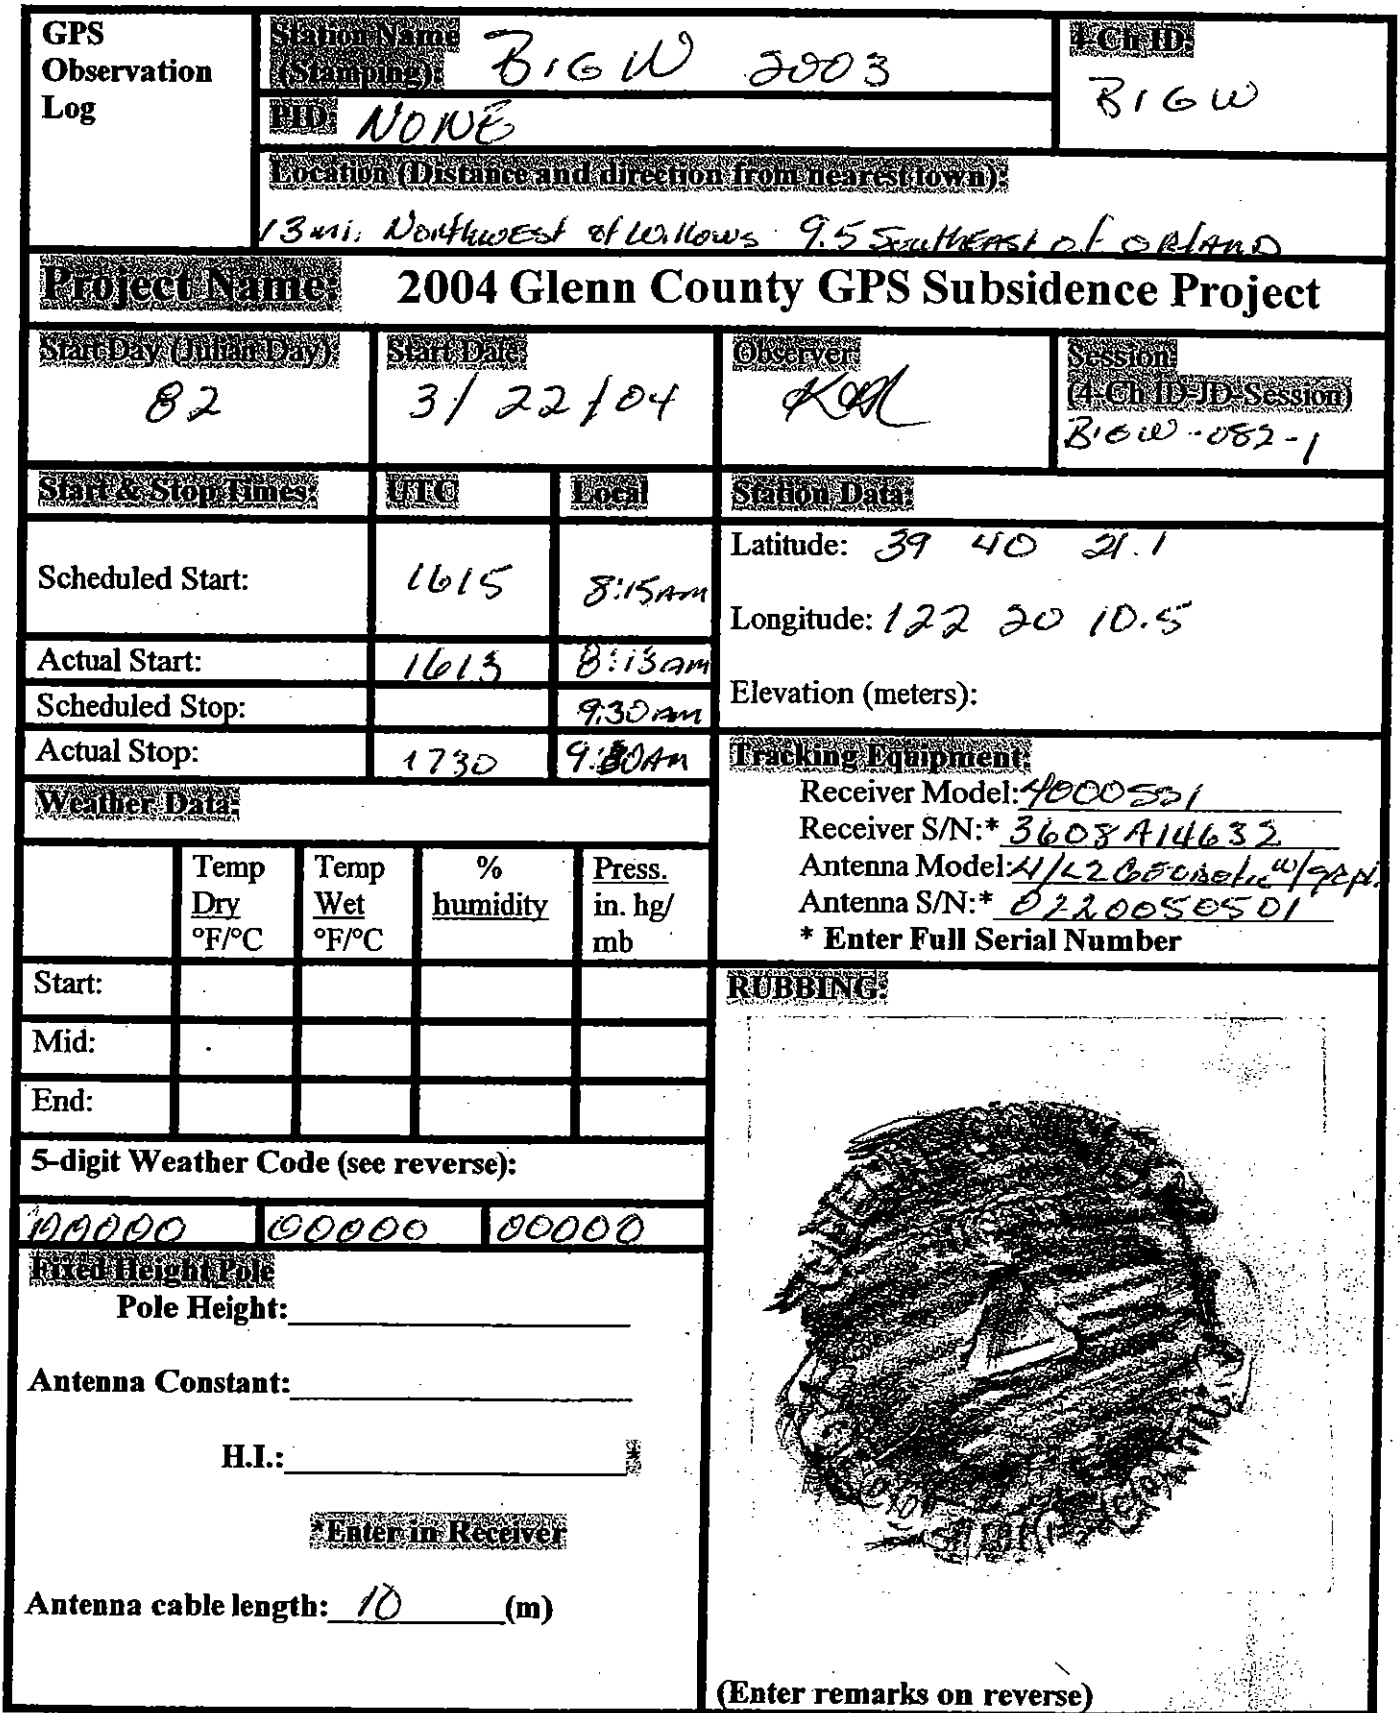 GPS
Observation
Log
Station Name
(Stamping): BIGW 2003
4-Ch ID:
BIGW
PID: NONE
Location (Distance and direction from nearest town):
13 mi. NorthwEst of Willows 9.5 SouthEAST of ORlAND
Project Name: 2004 Glenn County GPS Subsidence Project
Start Day (Julian Day):
82
Start Date:
3/22/04
Observer
Session:
(4-Ch ID-JD-Session)
BIGW-082-1
Start & Stop Times: UTC Local
Scheduled Start: 1615 8:15AM
Actual Start: 1613 8:13AM
Scheduled Stop: 9:30AM
Actual Stop: 1730 9:30AM
Station Data:
Latitude: 39 40 21.1
Longitude: 122 20 10.5
Elevation (meters):
Tracking Equipment:
Receiver Model: 4000SSI
Receiver S/N:* 3608A14632
Antenna Model: L1/L2 GEODetic w/
Antenna S/N:* 0220050501
* Enter Full Serial Number
Weather Data:
Temp
Dry
°F/°C
Temp
Wet
°F/°C
%
humidity
Press.
in. hg/
mb
Start:
Mid:
End:
5-digit Weather Code (see reverse):
00000 00000 00000
Fixed Height Pole
Pole Height:
Antenna Constant:
H.I.: *
*Enter in Receiver
Antenna cable length: 10 (m)
RUBBING:
(Enter remarks on reverse)